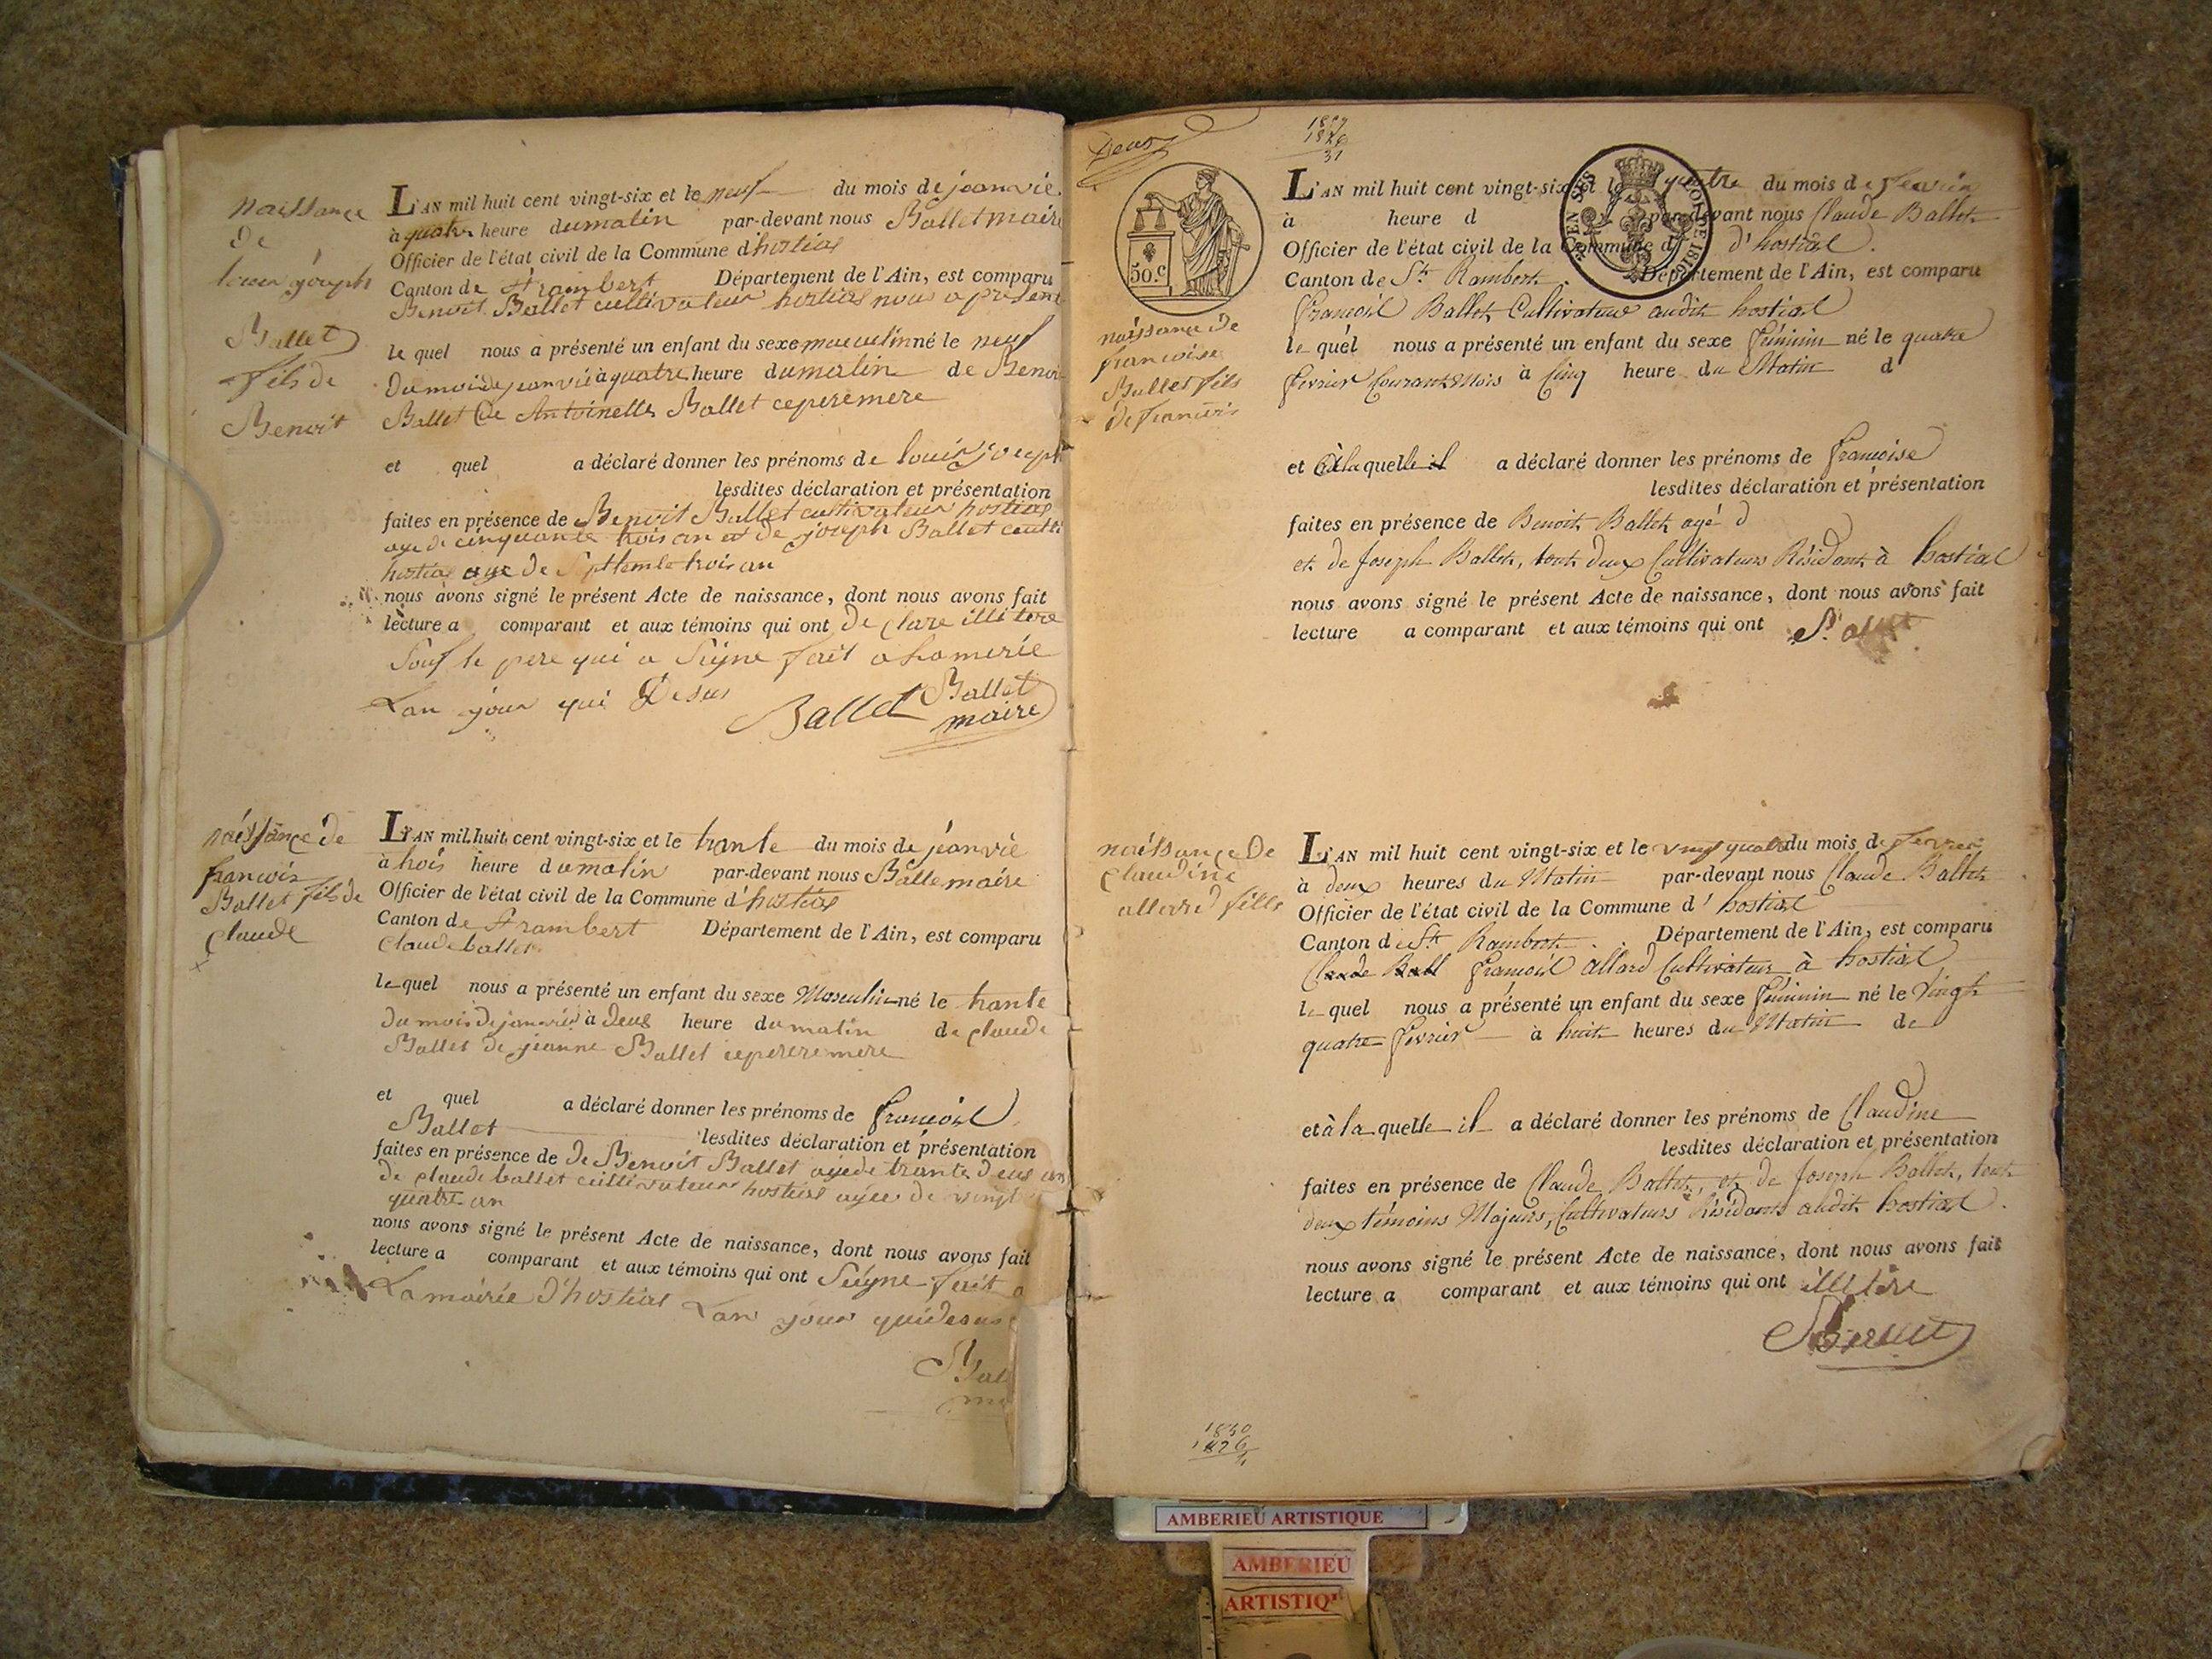 naissance
de
louis joseph
Ballet
fils de
Benoit
L'AN mil huit cent vingt-six et le neuf du mois de jeanvie
à quatre heure du matin par-devant nous Ballet maire
Officier de l'état civil de la Commune d'hostias
Canton de St rambert Département de l'Ain, est comparu
Benoit Ballet cultivateur hostias nous a présenté
le quel nous a présenté un enfant du sexe masculin né le neuf
du mois de jeanvié à quatre heure du matin de Benoit
Ballet De Antoinette Ballet ce pere mere
et quel a déclaré donner les prénoms de louis joseph
lesdites déclaration et présentation
faites en présence de Benoit Ballet cultivateur hostias
age de cinquante trois an et de joseph Ballet
hostias age de trois an
nous avons signé le présent Acte de naissance, dont nous avons fait
lecture a comparant et aux témoins qui ont De clare illitere
Souf le pere qui a Signe fait a Lamerie
Lan jour qui Desus
Ballet Ballet
maire
naissance de
francois
Ballet fils de
claude
L'AN mil huit cent vingt-six et le trante du mois de jeanvié
à trois heure du matin par-devant nous Balle maire
Officier de l'état civil de la Commune d'hostias
Canton de St rambert Département de l'Ain, est comparu
Claude ballet
le quel nous a présenté un enfant du sexe Masculin né le trante
du mois de janvié à Deus heure du matin de claude
Ballet de jeanne Ballet
et quel a déclaré donner les prénoms de francois
Ballet lesdites déclaration et présentation
faites en présence de De Benoit Ballet age de trante deus an
de claude ballet cultivateur hostias agee de vingt
quatre an
nous avons signé le présent Acte de naissance, dont nous avons fait
lecture a comparant et aux témoins qui ont Seigne fait a
La mairie d'hostias Lan jour qui desus
Bal
ma
Deux
1857
1826
31
50.c
naissance de
francoise
Ballet fils
de francois
L'AN mil huit cent vingt-six et le quatre du mois de fevrier
à heure d par-devant nous Claude Ballet
Officier de l'état civil de la Commune d d'hostial.
Canton de St. Rambert. Département de l'Ain, est comparu
françois Ballet Cultivateur audit hostial
le quel nous a présenté un enfant du sexe féminin né le quatre
fevrier Courant Mois à Cinq heure du Matin d
et à la quelle il a déclaré donner les prénoms de françoise
lesdites déclaration et présentation
faites en présence de Benoit Ballet agé d
et de Joseph Ballet, tout deux Cultivateurs Résidant à hostial
nous avons signé le présent Acte de naissance, dont nous avons fait
lecture a comparant et aux témoins qui ont
naissance De
claudine
allard fille
L'AN mil huit cent vingt-six et le vingt quatre du mois de fevrier
à deux heures du Matin par-devant nous Claude Ballet
Officier de l'état civil de la Commune d' hostial
Canton de St. Rambert. Département de l'Ain, est comparu
Claude Ball françois allard Cultivateur à hostial
le quel nous a présenté un enfant du sexe féminin né le Vingt
quatre fevrier à huit heures du Matin de
et à la quelle il a déclaré donner les prénoms de Claudine
lesdites déclaration et présentation
faites en présence de Claude Ballet, et de Joseph Ballet, tout
deux témoins Majeurs, Cultivateurs Résidants audit hostial.
nous avons signé le présent Acte de naissance, dont nous avons fait
lecture a comparant et aux témoins qui ont illitére
Ballet
1830
1826
AMBERIEU ARTISTIQUE
AMBERIEU
ARTISTIQ